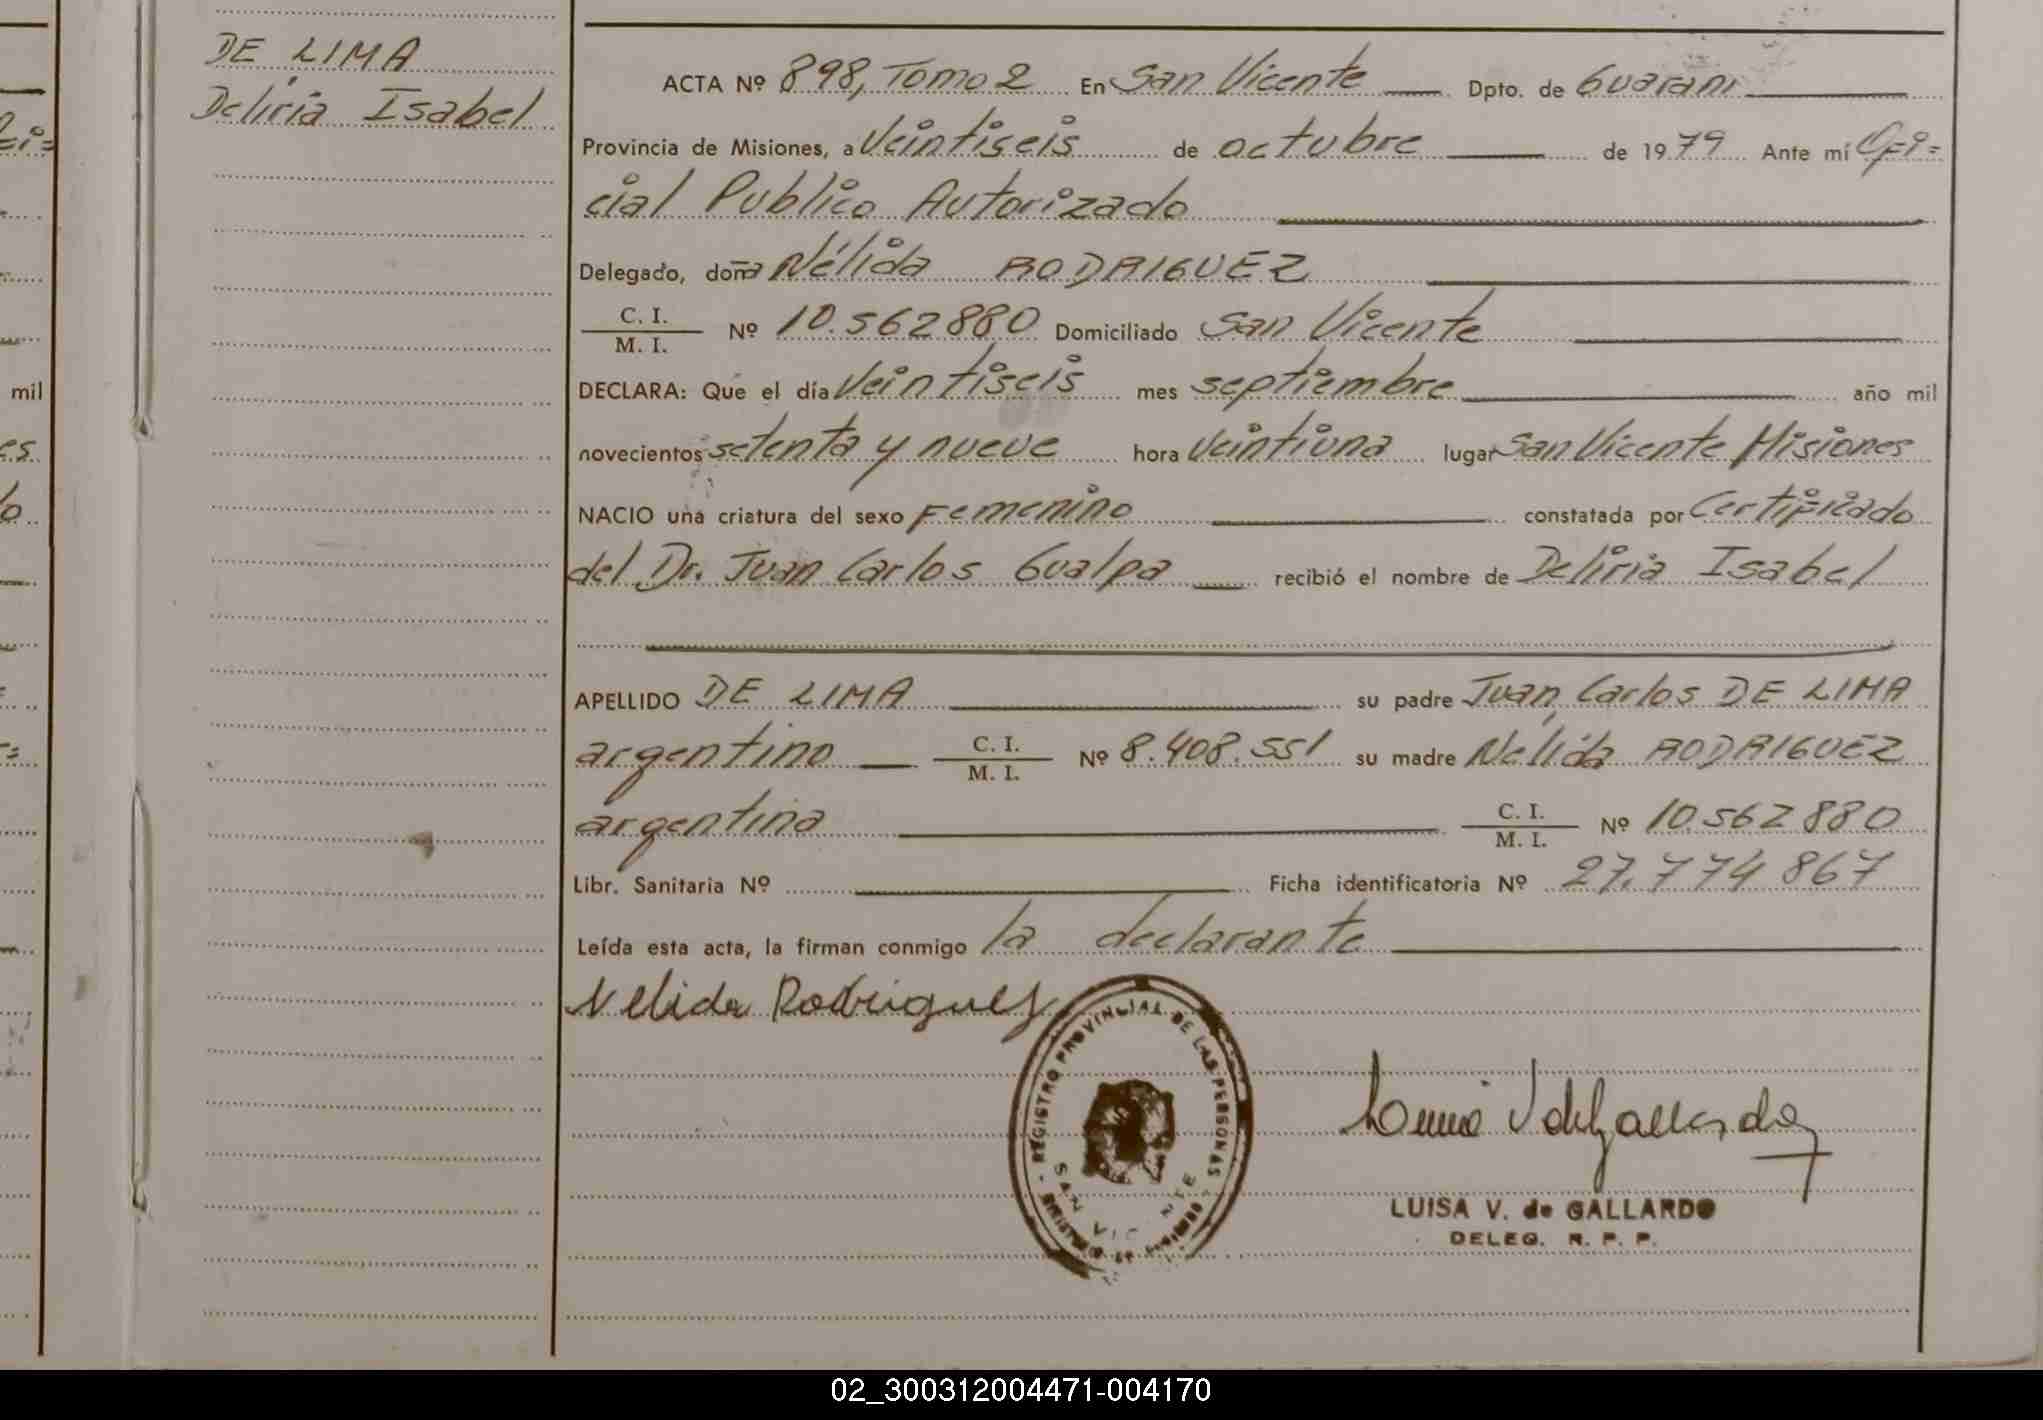 DE LIMA
Deliria Isabel
ACTA Nº 898, Tomo 2 En San Vicente Dpto. de Guarani
Provincia de Misiones, a Veintiseis de octubre de 1979 Ante mí Ofi=
cial Publico Autorizado
Delegado, doña Nélida RODRIGUEZ
C. I.
M. I. Nº 10.562880 Domiciliado San Vicente
DECLARA: Que el día Veintiseis mes septiembre año mil
novecientos setenta y nueve hora Veintiuna lugar San Vicente Misiones
NACIO una criatura del sexo Femenino constatada por Certificado
del Dr. Juan Carlos Gualpa recibió el nombre de Deliria Isabel
APELLIDO DE LIMA su padre Juan Carlos DE LIMA
argentino C. I.
M. I. Nº 8.408.551 su madre Nélida RODRIGUEZ
argentina C. I.
M. I. Nº 10.562880
Libr. Sanitaria Nº Ficha identificatoria Nº 27.774867
Leída esta acta, la firman conmigo la declarante
Nelida Rodriguez
REGISTRO PROVINCIAL DE LAS PERSONAS
SAN VICENTE
LUISA V. de GALLARDO
DELEG. R. P. P.
mil
es
lo
02_300312004471-004170